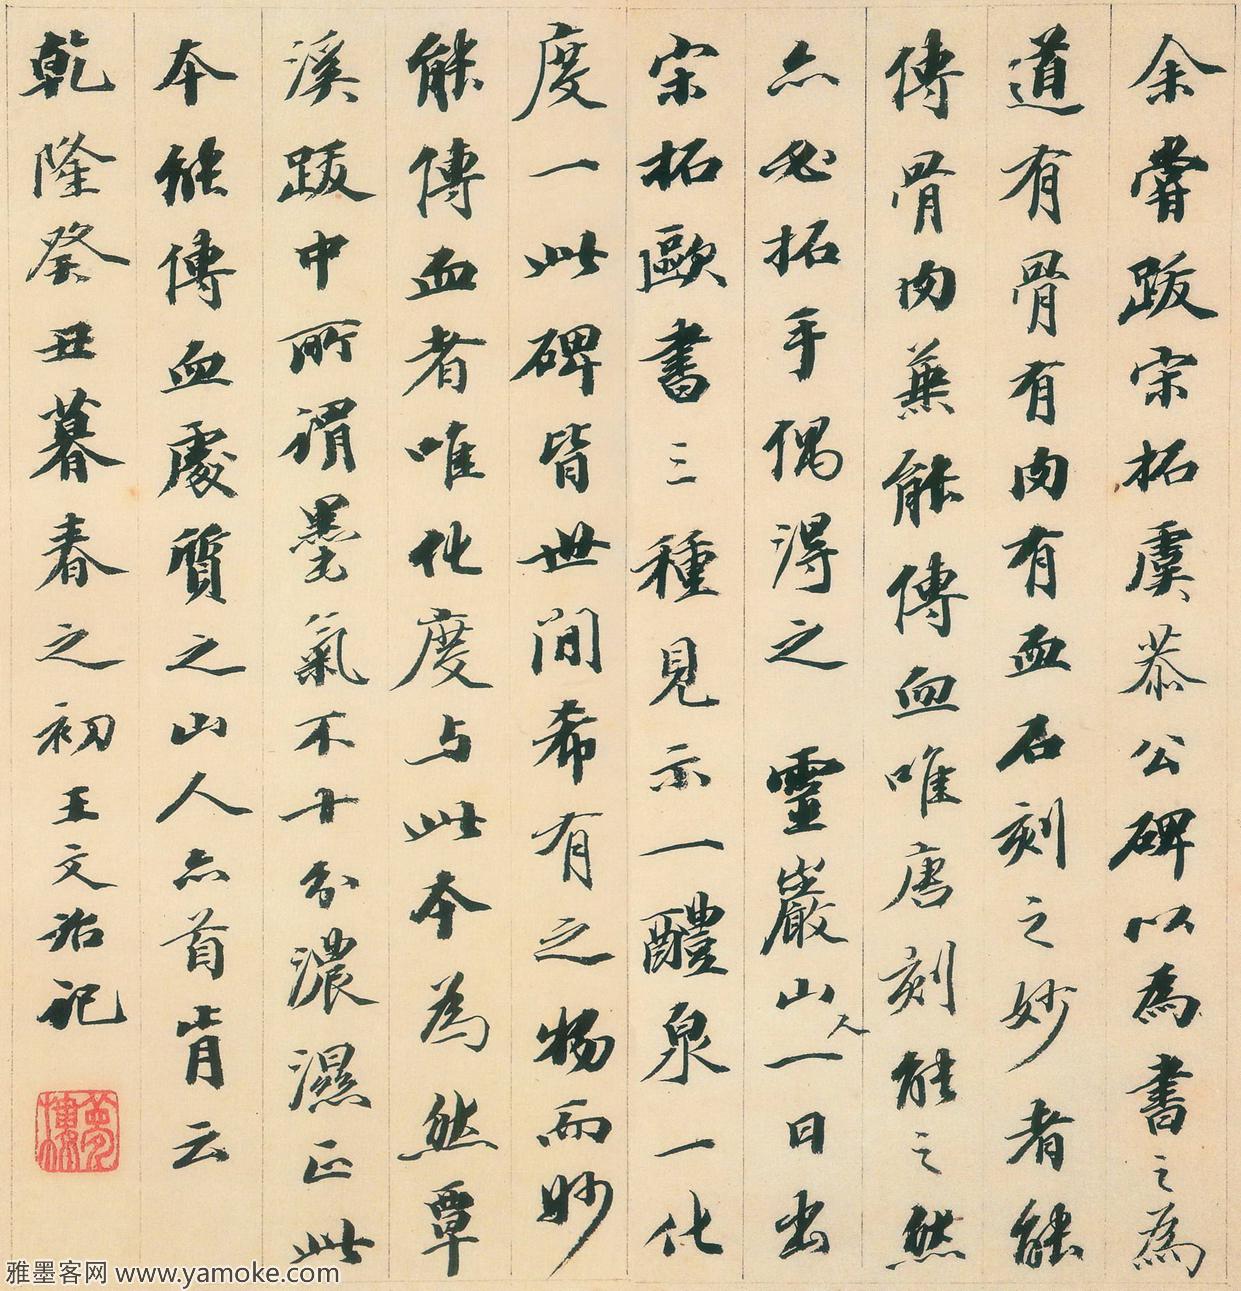 余嘗跋宋拓虞恭公碑以為書之為
道有骨有肉有血石刻之妙者能
傳骨肉無能傳血唯唐刻能之然
亦必拓手偶得之 靈巖山人一日出
宋拓歐書三種見示一醴泉一化
度一此碑皆世間希有之物而妙
能傳血者唯化度与此本為然覃
溪跋中所謂墨氣不十分濃濕正此
本能傳血處質之山人亦首肯云
乾隆癸丑暮春之初王文治記
夢樓
雅墨客网 www.yamoke.com